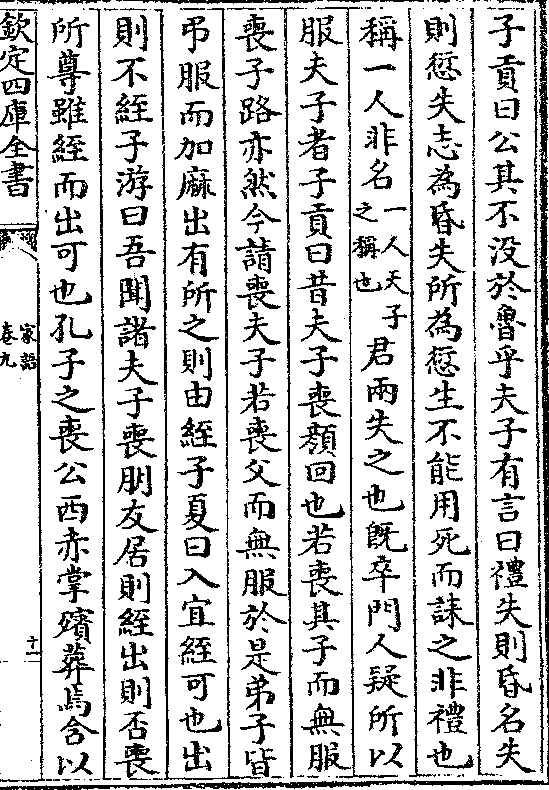 子貢曰公其不没於魯乎夫子有言曰禮失則昏名失
則愆失志為昏失所為愆生不能用死而誄之非禮也
稱一人非名一人天子之稱也君兩失之也既卒門人疑所以
服夫子者子貢曰昔夫子喪顔回也若喪其子而無服
喪子路亦然今請喪夫子若喪父而無服於是弟子皆
弔服而加麻出有所之則由絰子夏曰入宜絰可也出
則不絰子游曰吾聞諸夫子喪朋友居則絰出則否喪
所尊雖絰而出可也孔子之喪公西赤掌殯葬焉含以
欽定四庫全書
家語
卷九
十一